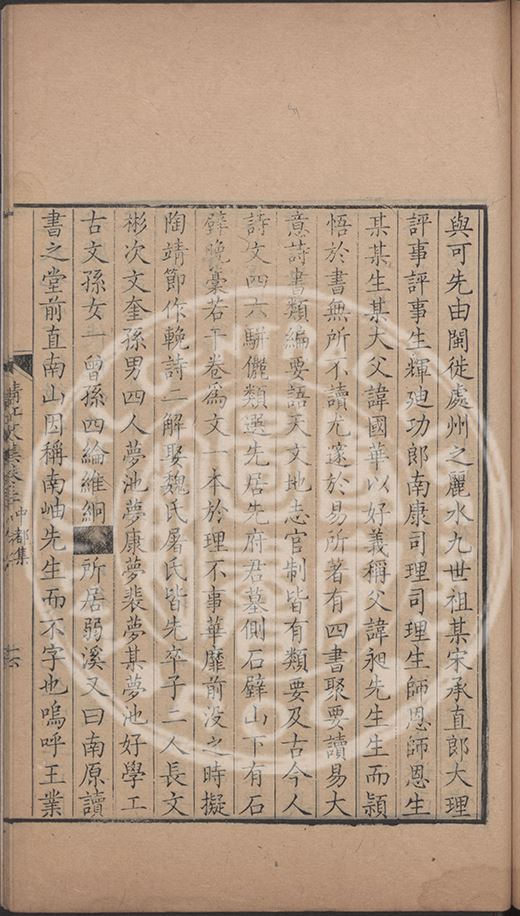 與可先由閩徙處州之麗水九世祖某宋承直郎大理
評事評事生輝廸功郎南康司理司理生師恩師恩生
某某生某大父諱國華以好義稱父諱昶先生生而頴
悟於書無所不讀尤邃於易所著有四書聚要讀易大
意詩書類編要語天文地志官制皆有類要及古今人
詩文四六駢儷類選先居先府君墓側石壁山下有石
壁晚藁若干卷爲文一本於理不事華靡前没之時擬
陶靖節作輓詩二解娶魏氏屠氏皆先卒子二人長文
彬次文奎孫男四人夢池夢康夢裴夢某夢池好學工
古文孫女一曾孫四綸維絅所居弱溪又曰南原讀
書之堂前直南山因稱南岫先生而不字也嗚呼王業
清江文集卷三 中都集
十六